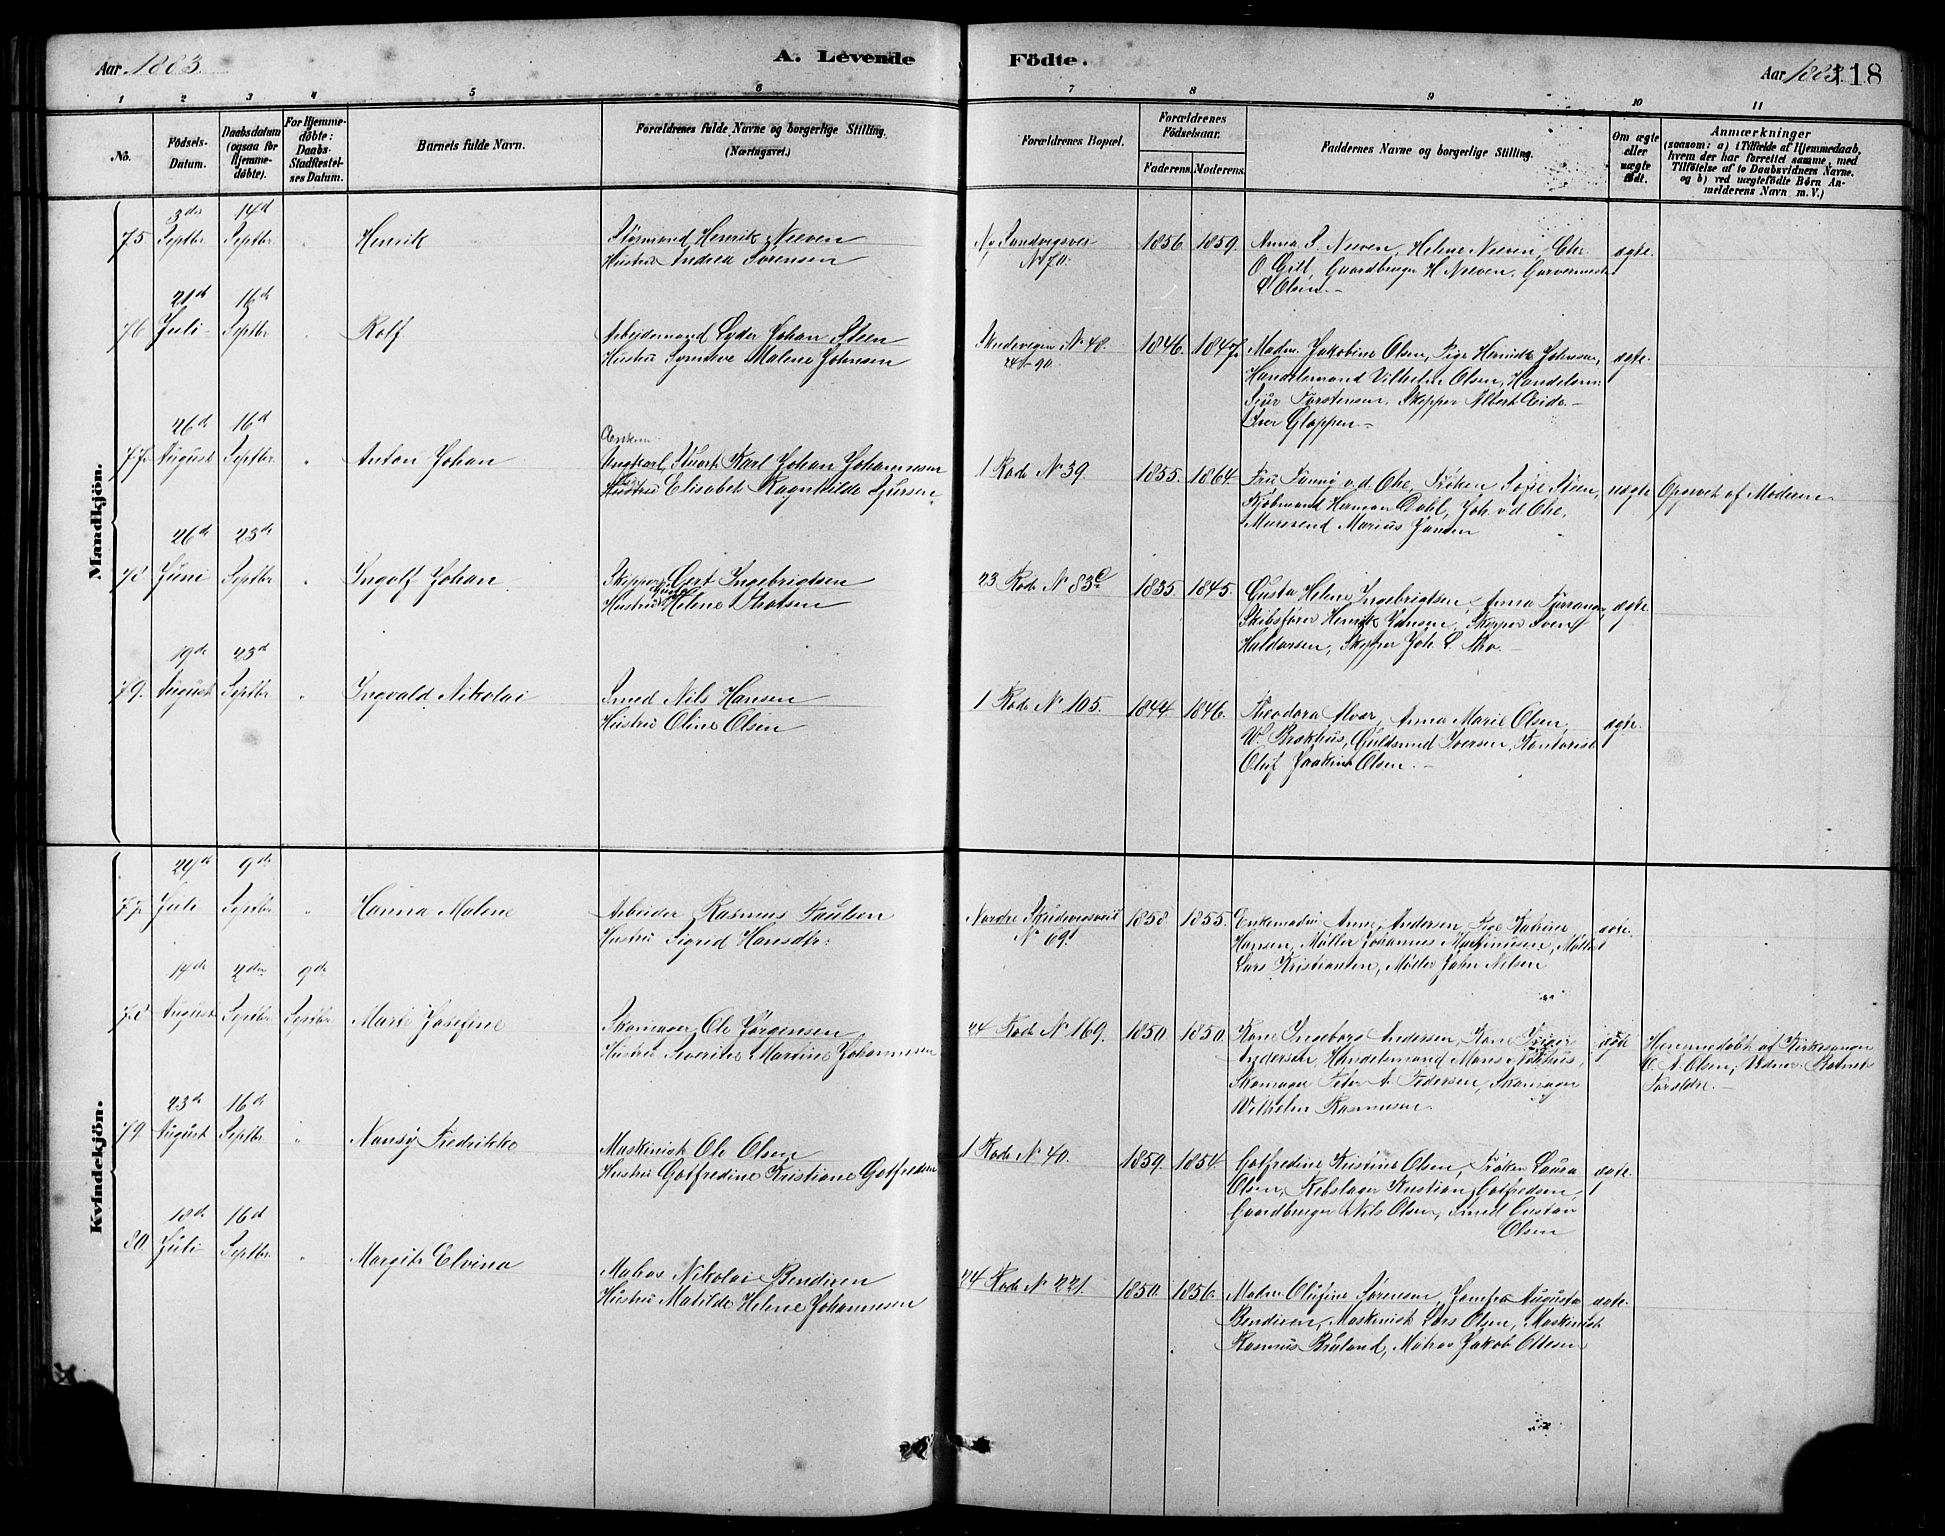 Aar 1883.
A. Levende Födte.
Aar 1883.
118
1 2 3 4 5 6 7 8 9 10 11
No.
Födsels-
Datum.
Daabsdatum
(ogsaa for
Hjemme-
döbte).
For Hjemme-
döbte:
Daabs-
Stadfæstel-
ses Datum.
Barnets fulde Navn.
Forældrenes fulde Navne og borgerlige Stilling.
(Næringsvei.)
Forældrenes Bopæl.
Forældrenes
Födselsaar.
Faderens. Moderens.
Faddernes Navne og borgerlige Stilling.
Om ægte
eller
uægte
födt.
Anmærkninger
(saasom: a) i Tilfælde af Hjemmedaab,
hvem der har forrettet samme, med
Tilföielse af to Daabsvidners Navne.
og b) ved uægtefödte Börn An-
melderens Navn m. V.)
Mandkjön.
3die 14d
75 Septbr Septbr " Henrik
Hustru Andrea Sørensen
N. Sandvigsvei
N. 70.
1856. 1859.
Anna S. Neeven, Helene Neeven, Chr.
O Gill, Gaardbruger H. Neeven, Garvermester
Olsen.
ægte.
21d 16d
76 Juli Septbr " Rolf
Arbeidsmand Lyder Johan Steen
Hustru Synneve Malene Johnsen
N. 48.
24 - 90.
1846. 1847.
Madm. Jakobine Olsen, Pige Henrikke Johnsen,
Handelsmand Vilhelm Olsen, Handelsm.
Sjur Torstensen, Skipper Albert Eide
Iver Gloppen
ægte.
26d 16d
77 August Septbr " Anton Johan
Ungkarl, Stuert Karl Johan Johannesen
Elisabet Ragnhilde Sjursen
1 Rode N. 39.
1855. 1864.
Fru Fanny v.d. Ohe, Frøken Sofie Steen,
Kjøbmand Herman Dahl, Joh. v.d. Ohe,
Marius Jansen
uægte
Opgivet af Moderen
26d 23d
78 Juni Septbr " Ingolf Johan
Skipper Gert Ingebrigtsen
Hustru Gusta Helene Knutsen
23 Rode N. 83c
1835. 1845.
Gusta Helene Ingebrigtsen, Anna
Skibsfører Henrik Johnsen, Skipper Svend
Haldorsen, Skipper Joh. L. Mo.
ægte
19de 23d
79. August Septbr " Ingvald Nikolai
Smed Nils Hansen
Hustru Oline Olsen
1 Rode N. 105.
1844. 1846.
Theodora Alver, Anna Marie Olsen,
W. Brakhus, Guldsmed Iversen, Kontorist
Oluf Joakim Olsen.
ægte.
Kvindekjön.
29d 9de
77 Juli Septbr " Hanna Malene
Arbeider Rasmus Paulsen
Hustru Sigrid Hansdtr.
Nordre Skudevigsveie
N. 69.
1858. 1855.
Enkemadm. Anne Andersen, Pige Katrine
Hansen, Møller Johannes Martinusen, Møller
Lars Kristiansen, Møller John Nilsen
ægte.
14de 2den 9de
78 August Septbr Septbr Marte Josefine
Skomager Ole Jørgensen
Hustru Severine Martine Johannesen
24 Rode N. 169.
1850. 1850.
Kone Ingeborg Andersen, Kone Inger
Andersen, Handelsmand Mons
Skomager Peter A. Pedersen, Skomager
Wilhelm Rasmussen.
ægte
Hjemmedøbt af Kirkesanger
C. A. Olsen, Vidner: Barnets
Forældre.
23d 16d
79 August Septbr " Nansy Fredrikke
Maskinist Ole Olsen
Hustru Gotfredine Kristiane Gotfredsen
1 Rode N. 40.
1859. 1854.
Gotfredine Kristine Olsen, Frøken Laura
Olsen, Rebslager Kristian Gotfredsen,
Gaardbruger Nils Olsen, Smed Gustav
Olsen
ægte.
18de 16d
80 Juli Septbr " Margit Elvina
Matros Nikolai Bendixen
Hustru Matilde Helene Johannesen
24 Rode N. 221.
1850. 1856.
Madm. Olufine Sørensen, Jomfru Augusta
Bendixen, Maskinist Lars Olsen, Maskinist
Rasmus Braland, Matros Jakob Ottesen
ægte.